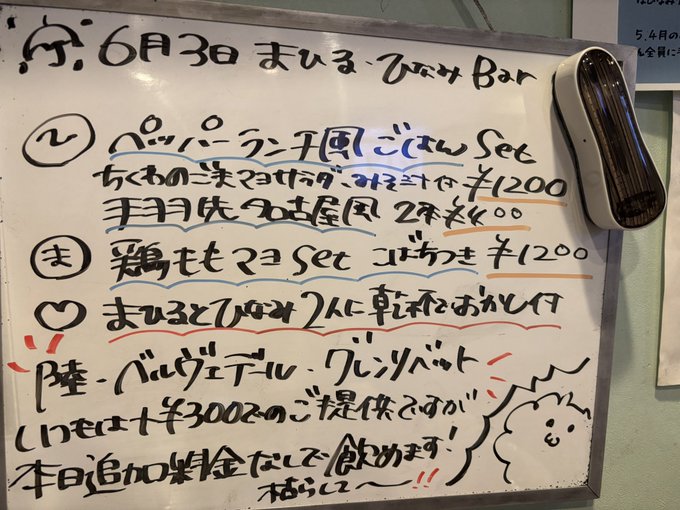 6月3日 まひる・ひなみBar
ひ ペッパーランチ風ごはんSet
ちくわのごまマヨサラダ、みそ汁付 ¥1200
手羽先名古屋風 2本¥400
ま 鶏ももマヨSet こばちつき ¥1200
♡ まひるとひなみ2人に乾杯でおかし付
陸・ベルヴェデール・グレンリベット
いつもは+¥300でのご提供ですが
本日追加料金なしで飲めます!
枯らして〜!!
5.4月の